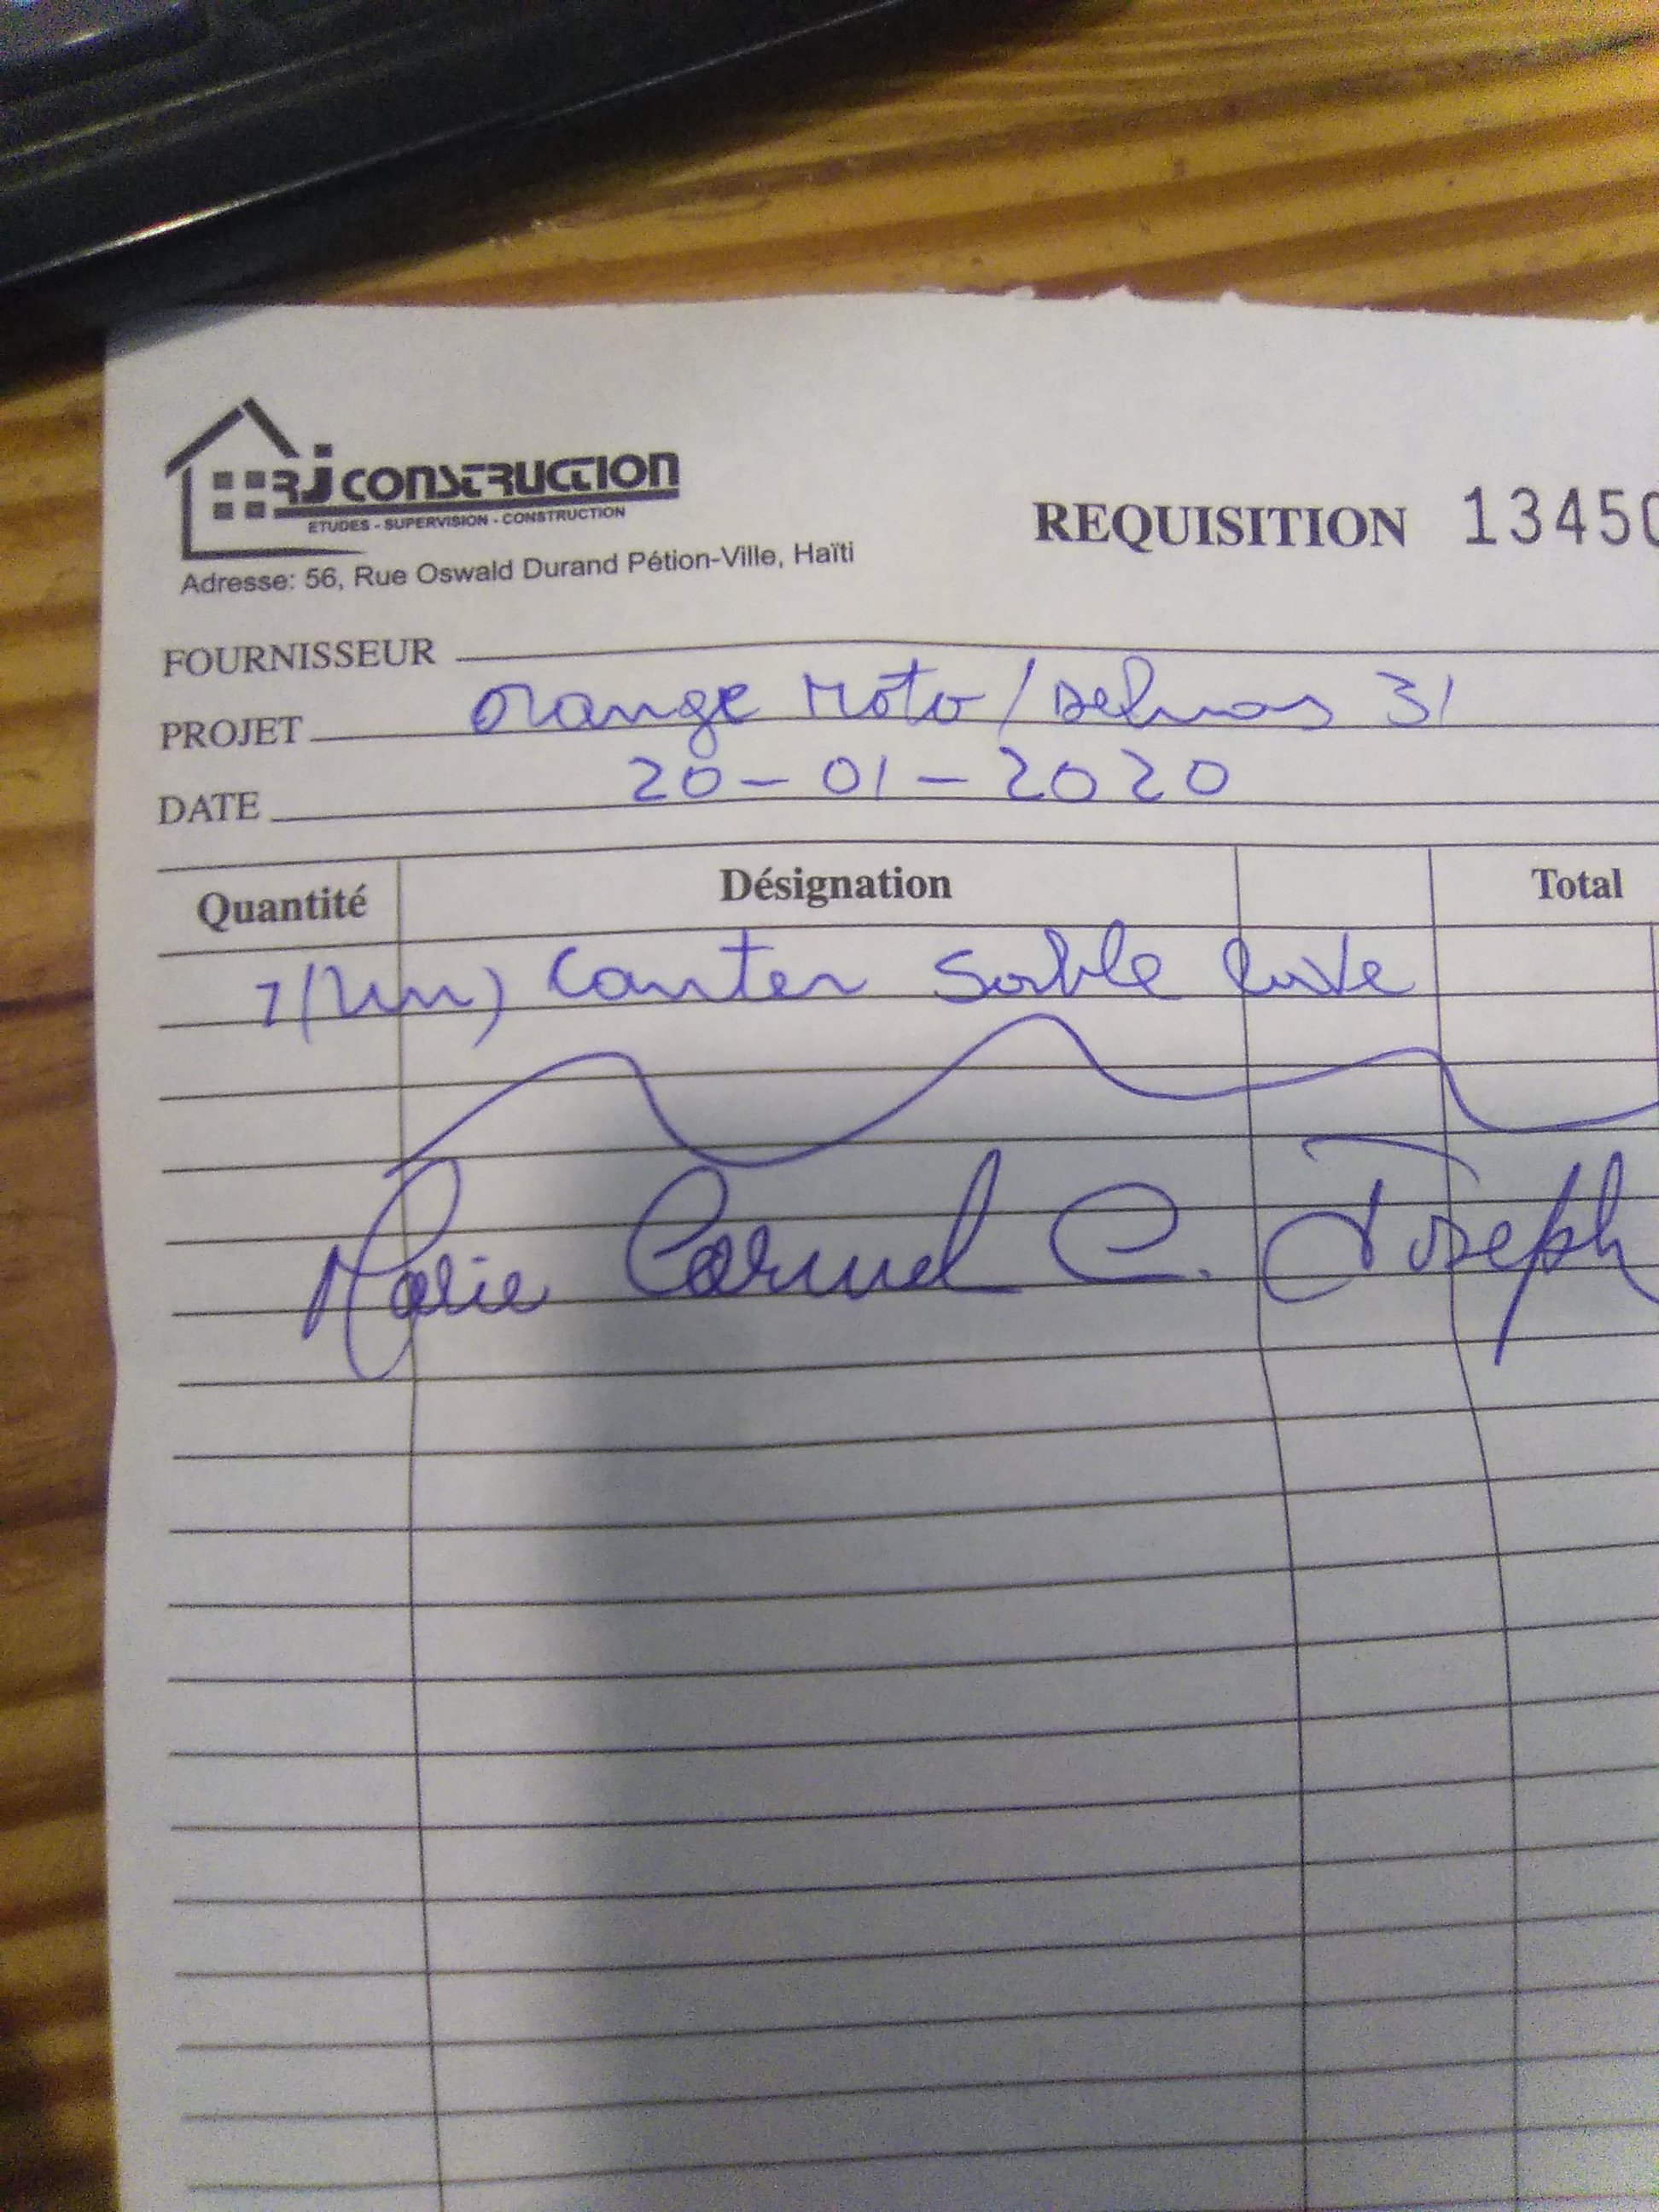 RJ CONSTRUCTION
ETUDES - SUPERVISION - CONSTRUCTION
Adresse: 56, Rue Oswald Durand Pétion-Ville, Haïti
REQUISITION 13450
FOURNISSEUR
PROJET Orange Moto / Delmas 31
DATE 20-01-2020
Quantité Désignation Total
1(Un) Canter Sable lavé
Marie Carmel C. Joseph